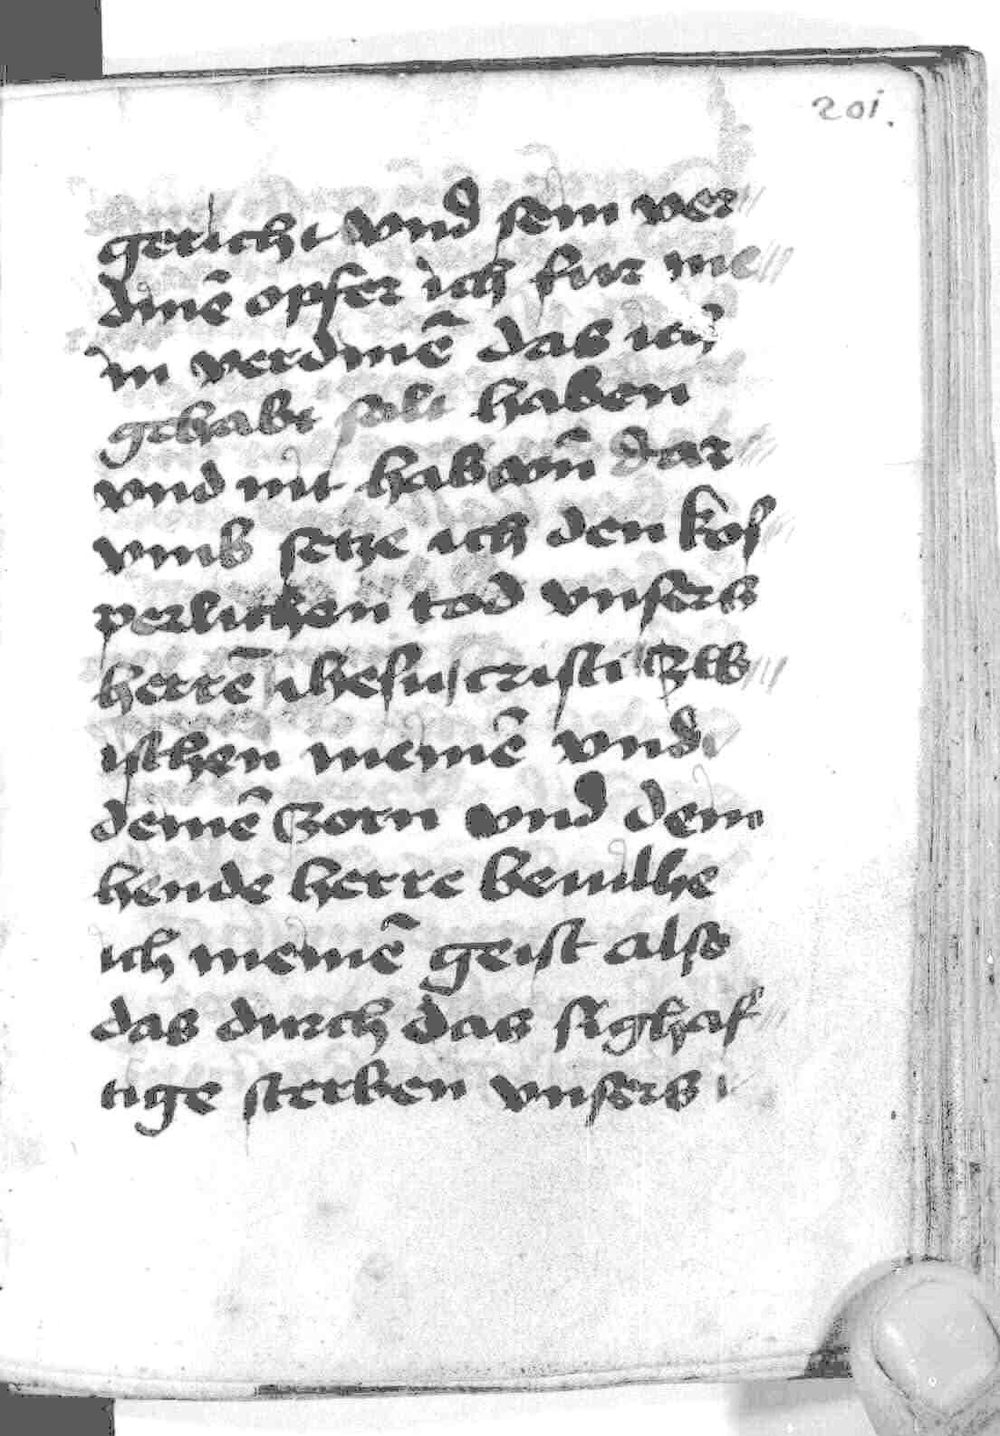 201.
gericht vnd sein ver
dinē opfer ich fur me
in verdinē das ich
gehabt solt haben
vnd nit hab vn̄ dar
vmb setze ich den kor
perlichen tod vnsers
herrē ihesu cristi Zw
ischen meinē vnd
deinē Zorn vnd dein
hende herre beuilhe
ich meinē geist also
das durch das sighaf
tige sterben vnsers